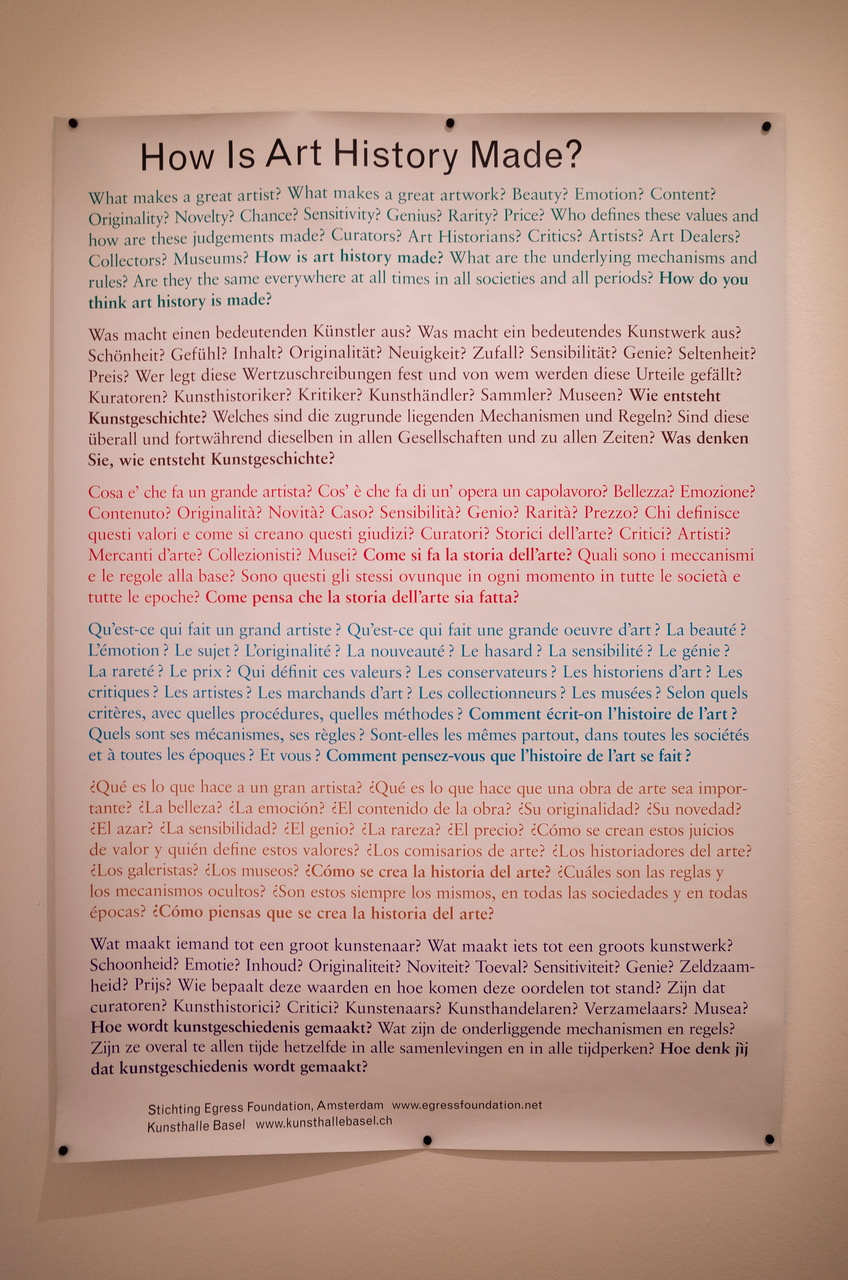 How Is Art History Made?
What makes a great artist? What makes a great artwork? Beauty? Emotion? Content?
Originality? Novelty? Chance? Sensitivity? Genius? Rarity? Price? Who defines these values and
how are these judgements made? Curators? Art Historians? Critics? Artists? Art Dealers?
Collectors? Museums? How is art history made? What are the underlying mechanisms and
rules? Are they the same everywhere at all times in all societies and all periods? How do you
think art history is made?
Was macht einen bedeutenden Künstler aus? Was macht ein bedeutendes Kunstwerk aus?
Schönheit? Gefühl? Inhalt? Originalität? Neuigkeit? Zufall? Sensibilität? Genie? Seltenheit?
Preis? Wer legt diese Wertzuschreibungen fest und von wem werden diese Urteile gefällt?
Kuratoren? Kunsthistoriker? Kritiker? Kunsthändler? Sammler? Museen? Wie entsteht
Kunstgeschichte? Welches sind die zugrunde liegenden Mechanismen und Regeln? Sind diese
überall und fortwährend dieselben in allen Gesellschaften und zu allen Zeiten? Was denken
Sie, wie entsteht Kunstgeschichte?
Cosa e' che fa un grande artista? Cos' è che fa di un' opera un capolavoro? Bellezza? Emozione?
Contenuto? Originalità? Novità? Caso? Sensibilità? Genio? Rarità? Prezzo? Chi definisce
questi valori e come si creano questi giudizi? Curatori? Storici dell'arte? Critici? Artisti?
Mercanti d'arte? Collezionisti? Musei? Come si fa la storia dell'arte? Quali sono i meccanismi
e le regole alla base? Sono questi gli stessi ovunque in ogni momento in tutte le società e
tutte le epoche? Come pensa che la storia dell'arte sia fatta?
Qu'est-ce qui fait un grand artiste ? Qu'est-ce qui fait une grande oeuvre d'art ? La beauté ?
L'émotion ? Le sujet ? L'originalité ? La nouveauté ? Le hasard ? La sensibilité ? Le génie ?
La rareté ? Le prix ? Qui définit ces valeurs ? Les conservateurs ? Les historiens d'art ? Les
critiques ? Les artistes ? Les marchands d'art ? Les collectionneurs ? Les musées ? Selon quels
critères, avec quelles procédures, quelles méthodes ? Comment écrit-on l'histoire de l'art ?
Quels sont ses mécanismes, ses règles ? Sont-elles les mêmes partout, dans toutes les sociétés
et à toutes les époques ? Et vous ? Comment pensez-vous que l'histoire de l'art se fait ?
¿Qué es lo que hace a un gran artista? ¿Qué es lo que hace que una obra de arte sea impor-
tante? ¿La belleza? ¿La emoción? ¿El contenido de la obra? ¿Su originalidad? ¿Su novedad?
¿El azar? ¿La sensibilidad? ¿El genio? ¿La rareza? ¿El precio? ¿Cómo se crean estos juicios
de valor y quién define estos valores? ¿Los comisarios de arte? ¿Los historiadores del arte?
¿Los galeristas? ¿Los museos? ¿Cómo se crea la historia del arte? ¿Cuáles son las reglas y
los mecanismos ocultos? ¿Son estos siempre los mismos, en todas las sociedades y en todas
épocas? ¿Cómo piensas que se crea la historia del arte?
Wat maakt iemand tot een groot kunstenaar? Wat maakt iets tot een groots kunstwerk?
Schoonheid? Emotie? Inhoud? Originaliteit? Noviteit? Toeval? Sensitiviteit? Genie? Zeldzaam-
heid? Prijs? Wie bepaalt deze waarden en hoe komen deze oordelen tot stand? Zijn dat
curatoren? Kunsthistorici? Critici? Kunstenaars? Kunsthandelaren? Verzamelaars? Musea?
Hoe wordt kunstgeschiedenis gemaakt? Wat zijn de onderliggende mechanismen en regels?
Zijn ze overal te allen tijde hetzelfde in alle samenlevingen en in alle tijdperken? Hoe denk jij
dat kunstgeschiedenis wordt gemaakt?
Stichting Egress Foundation, Amsterdam www.egressfoundation.net
Kunsthalle Basel www.kunsthallebasel.ch